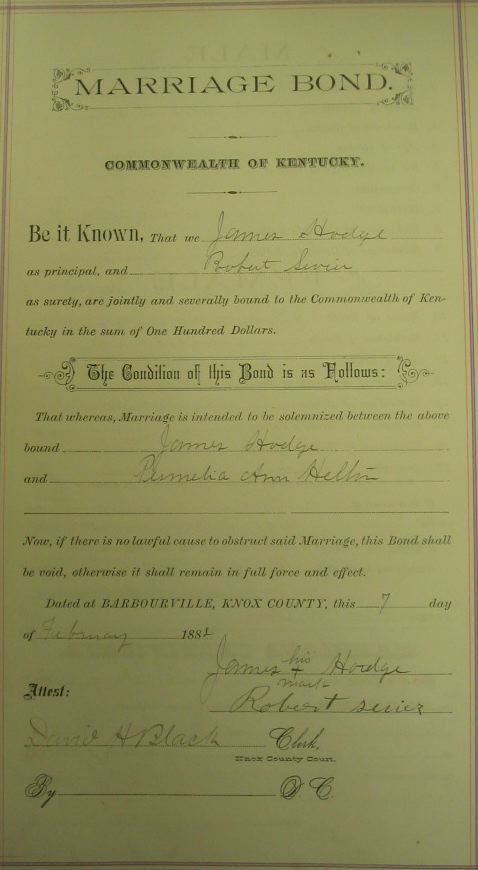 MARRIAGE BOND.
COMMONWEALTH OF KENTUCKY.
Be it Known, That we James Hodge
as principal, and Robert Sevier
as surety, are jointly and severally bound to the Commonwealth of Ken-
tucky in the sum of One Hundred Dollars.
The Condition of this Bond is as Follows:
That whereas, Marriage is intended to be solemnized between the above
bound James Hodge
and Permelia Ann Helton
Now, if there is no lawful cause to obstruct said Marriage, this Bond shall
be void, otherwise it shall remain in full force and effect.
Dated at BARBOURVILLE, KNOX COUNTY, this 7 day
of February 1881
James his + mark Hodge
Attest:
Robert
David H Black Clerk,
Knox County Court.
By D. C.